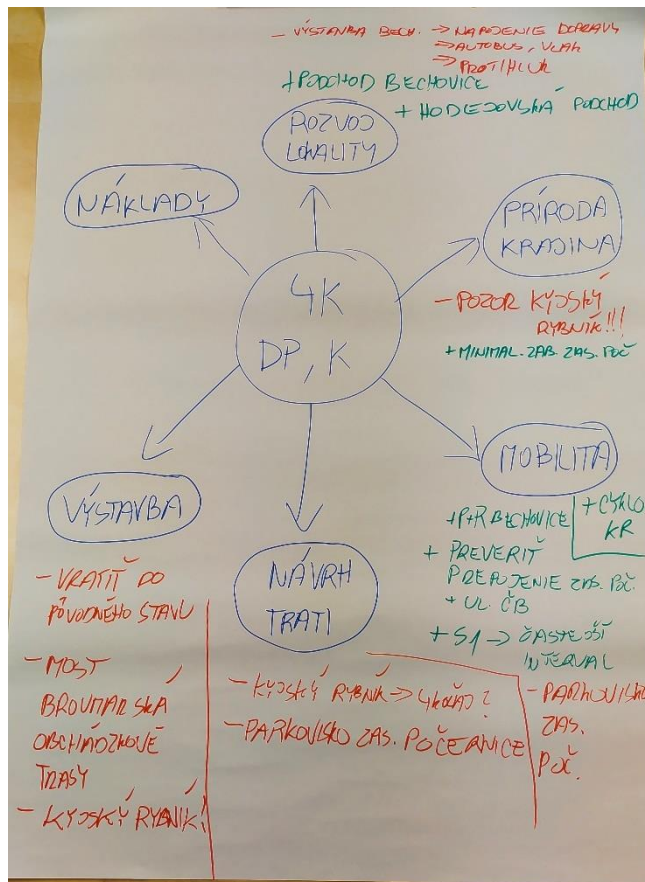 - VÝSTAVBA BECH. → NAPOJENIE DOPRAVY
→ AUTOBUS, VLAK
→ PROTIHLUK
+ PODCHOD BECHOVICE
+ HODEJOVSKÁ PODCHOD
ROZVOJ
LOKALITY
NÁKLADY
PRÍRODA
KRAJINA
- POZOR KYJSKÝ
RYBNÍK!!!
+ MINIMAL. ZAB. ZAS. POČ
4K
DP, K
MOBILITA
+ P+R BECHOVICE
+ CYKLO
KR
+ PREVERIŤ
PREPOJENIE ZAS. POČ.
+ UL. ČB
+ S1 → ČASTEJŠÍ
INTERVAL
- PARKOVISKO
ZAS.
POČ.
VÝSTAVBA
- VRATIŤ DO
PÔVODNÉHO STAVU
- MOST
BROUMARSKÁ
OBCHÁDZKOVÉ
TRASY
- KYJSKÝ RYBNÍK!
NÁVRH
TRATI
- KYJSKÝ RYBNÍK → 4 KOĽAJ?
- PARKOVISKO ZAS. POČERNICE